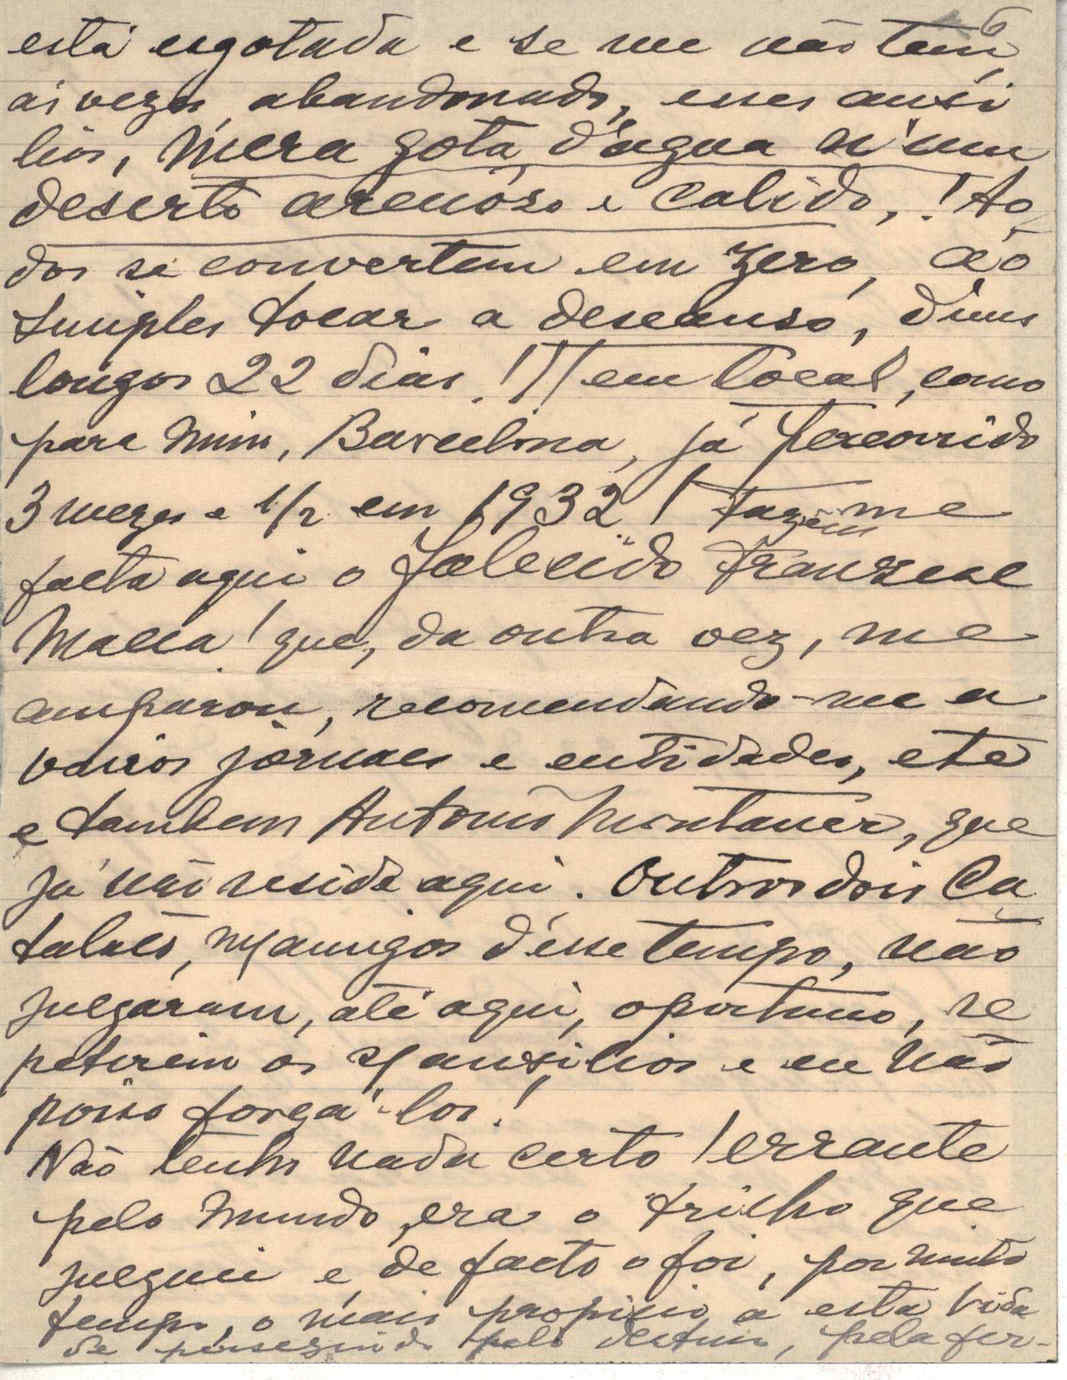 6
está esgotada e se me não tem,
ás vezes, abandonado, esses auxi
lios, mera gota d'agua n'um
deserto arenóso e calido,! To
dos se convertem em zero, ao
simples tocar a descanso, d'uns
longos 22 dias !!! em local, como
para mim, Barcelona, já percorrido
3 mezes e 1/2 em 1932! Fazem me
falta aqui o falecido Franzesc
Macia! que, da outra vez, me
amparou, recomendando-me a
varios jornaes e entidades, etc
e tambem Antonio Montaner, que
já não reside aqui. Outros dois Ca
talães, amigos d'esse tempo, não
julgaram, até aqui, oportuno, re
petirem os auxilios e eu não
posso forçá-los!
Não tenho nada certo! errante
pelo Mundo, era o trilho que
julguei e de facto o foi, por muito
tempo, o mais propicio a esta vida
de perseguido pelo destino, pela fer-